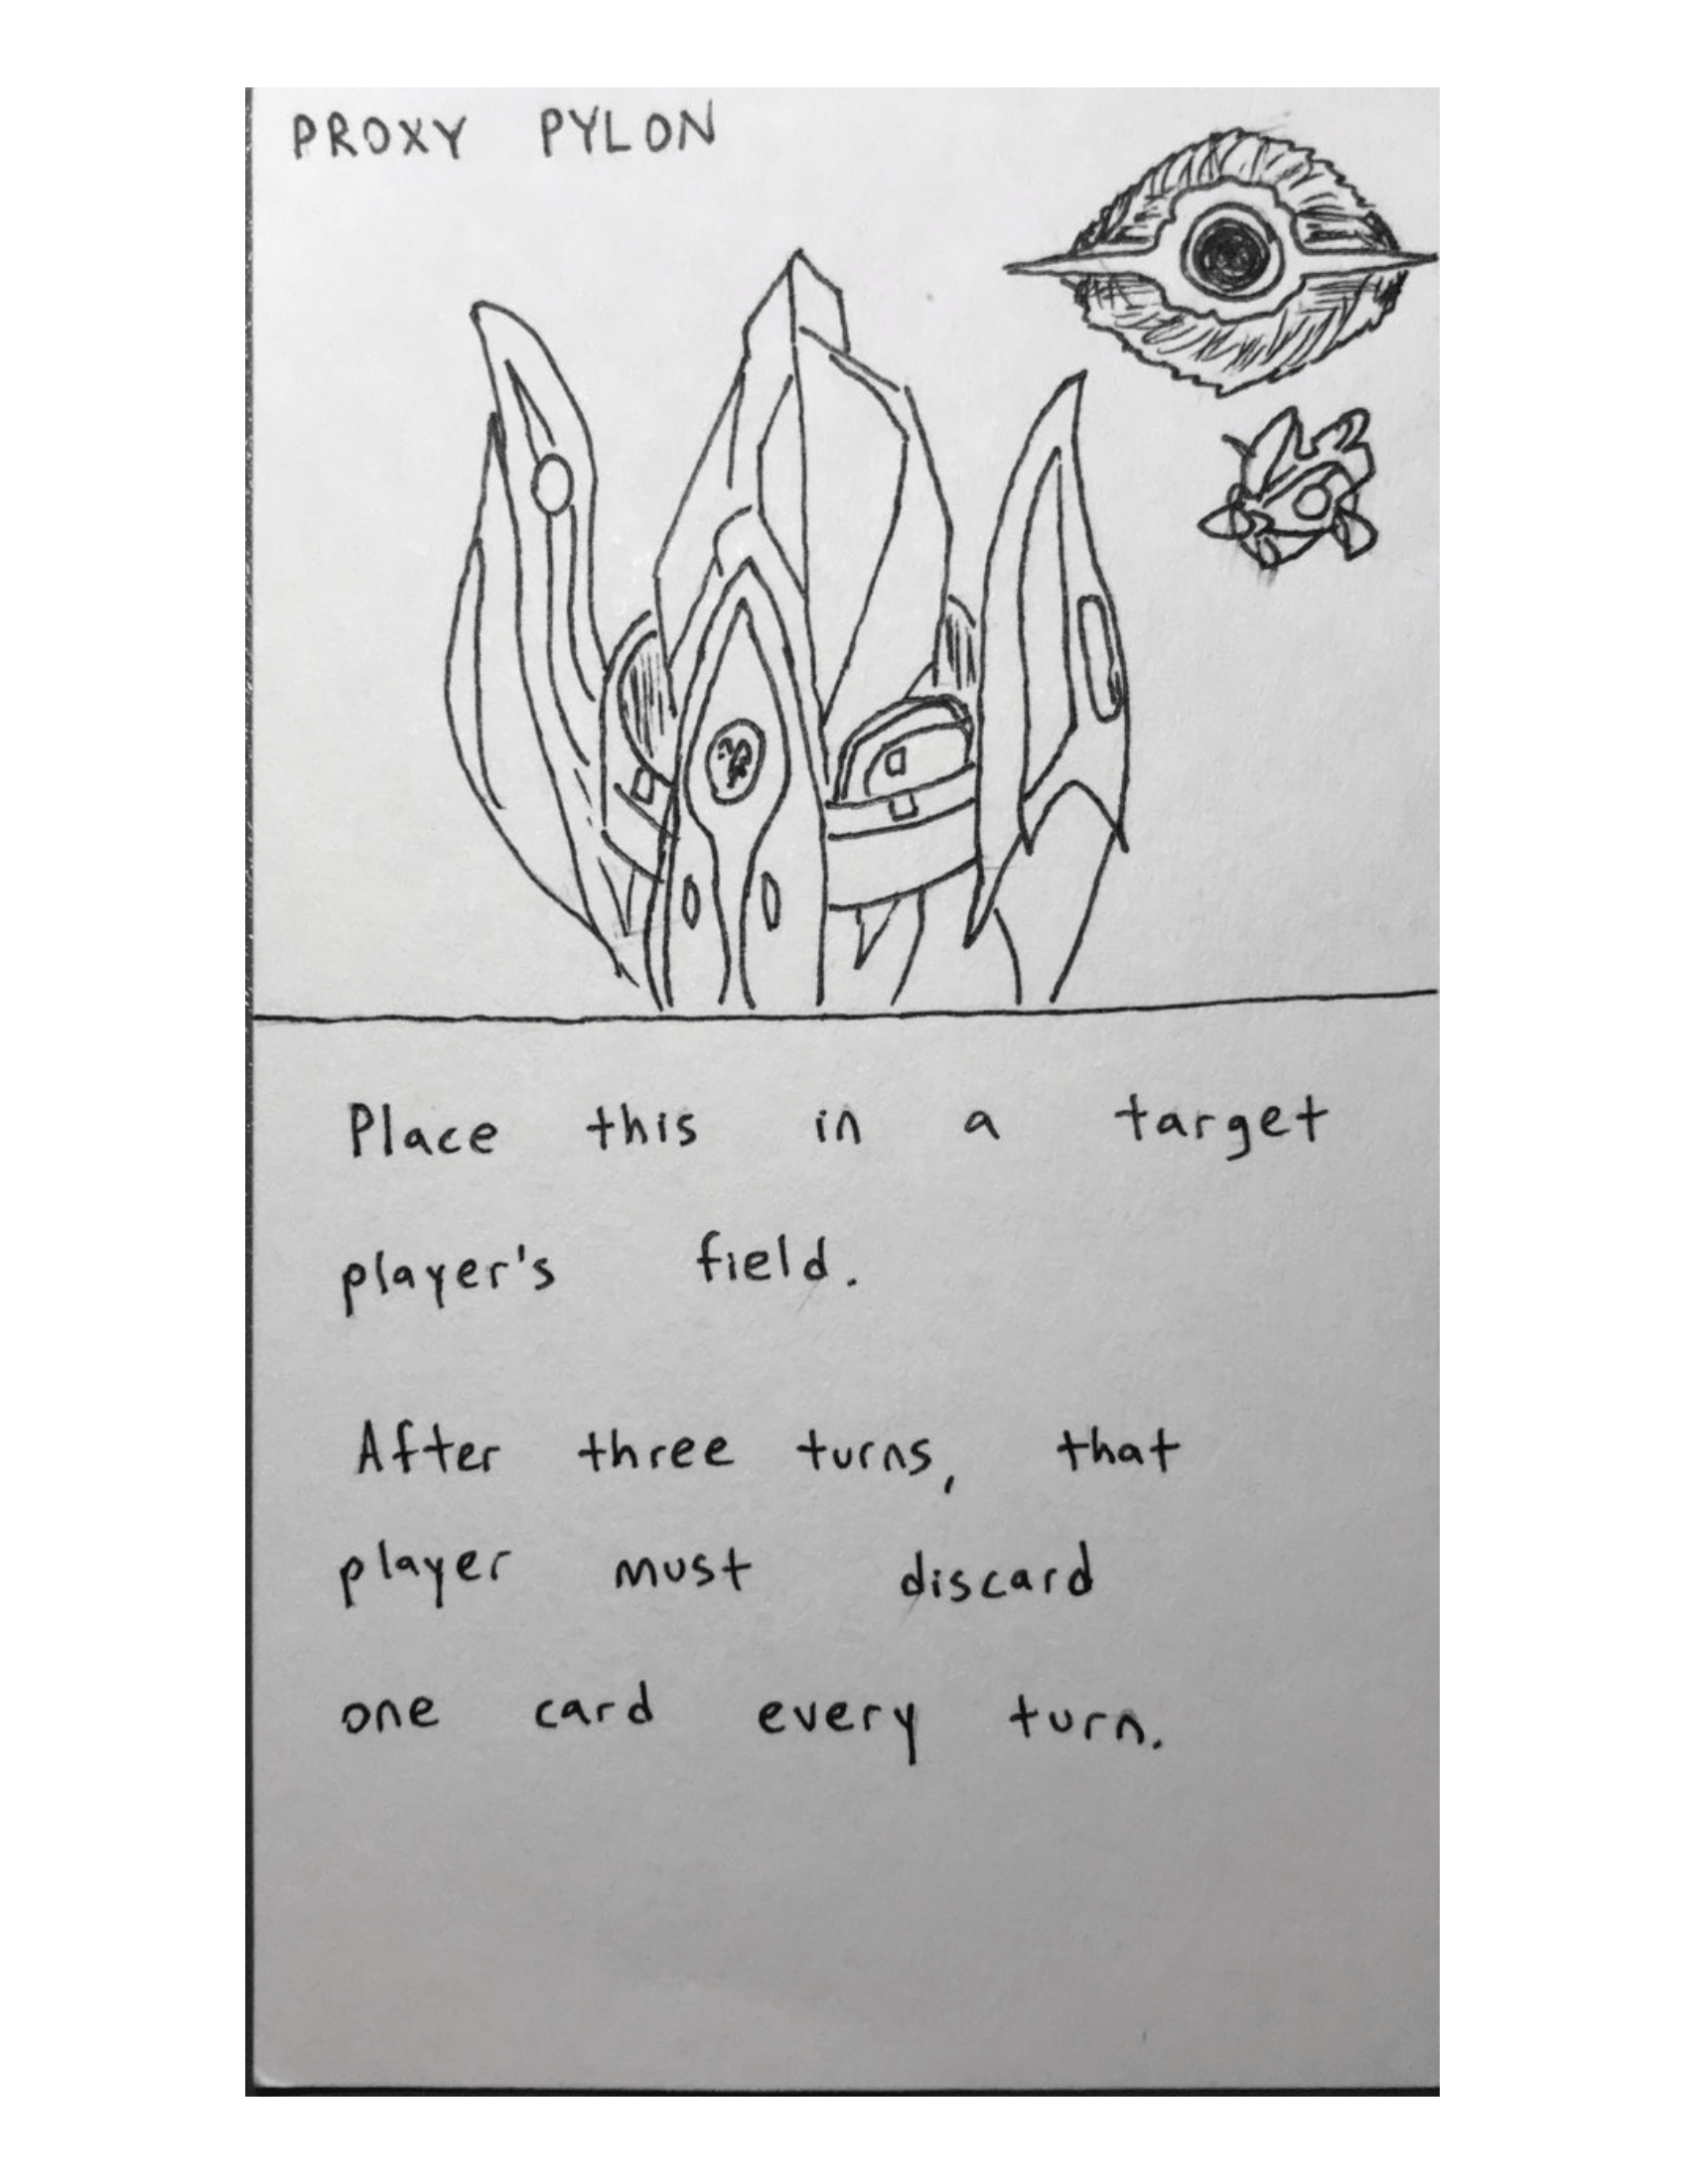 PROXY PYLON
Place this in a target
player's field.
After three turns, that
player must discard
one card every turn.